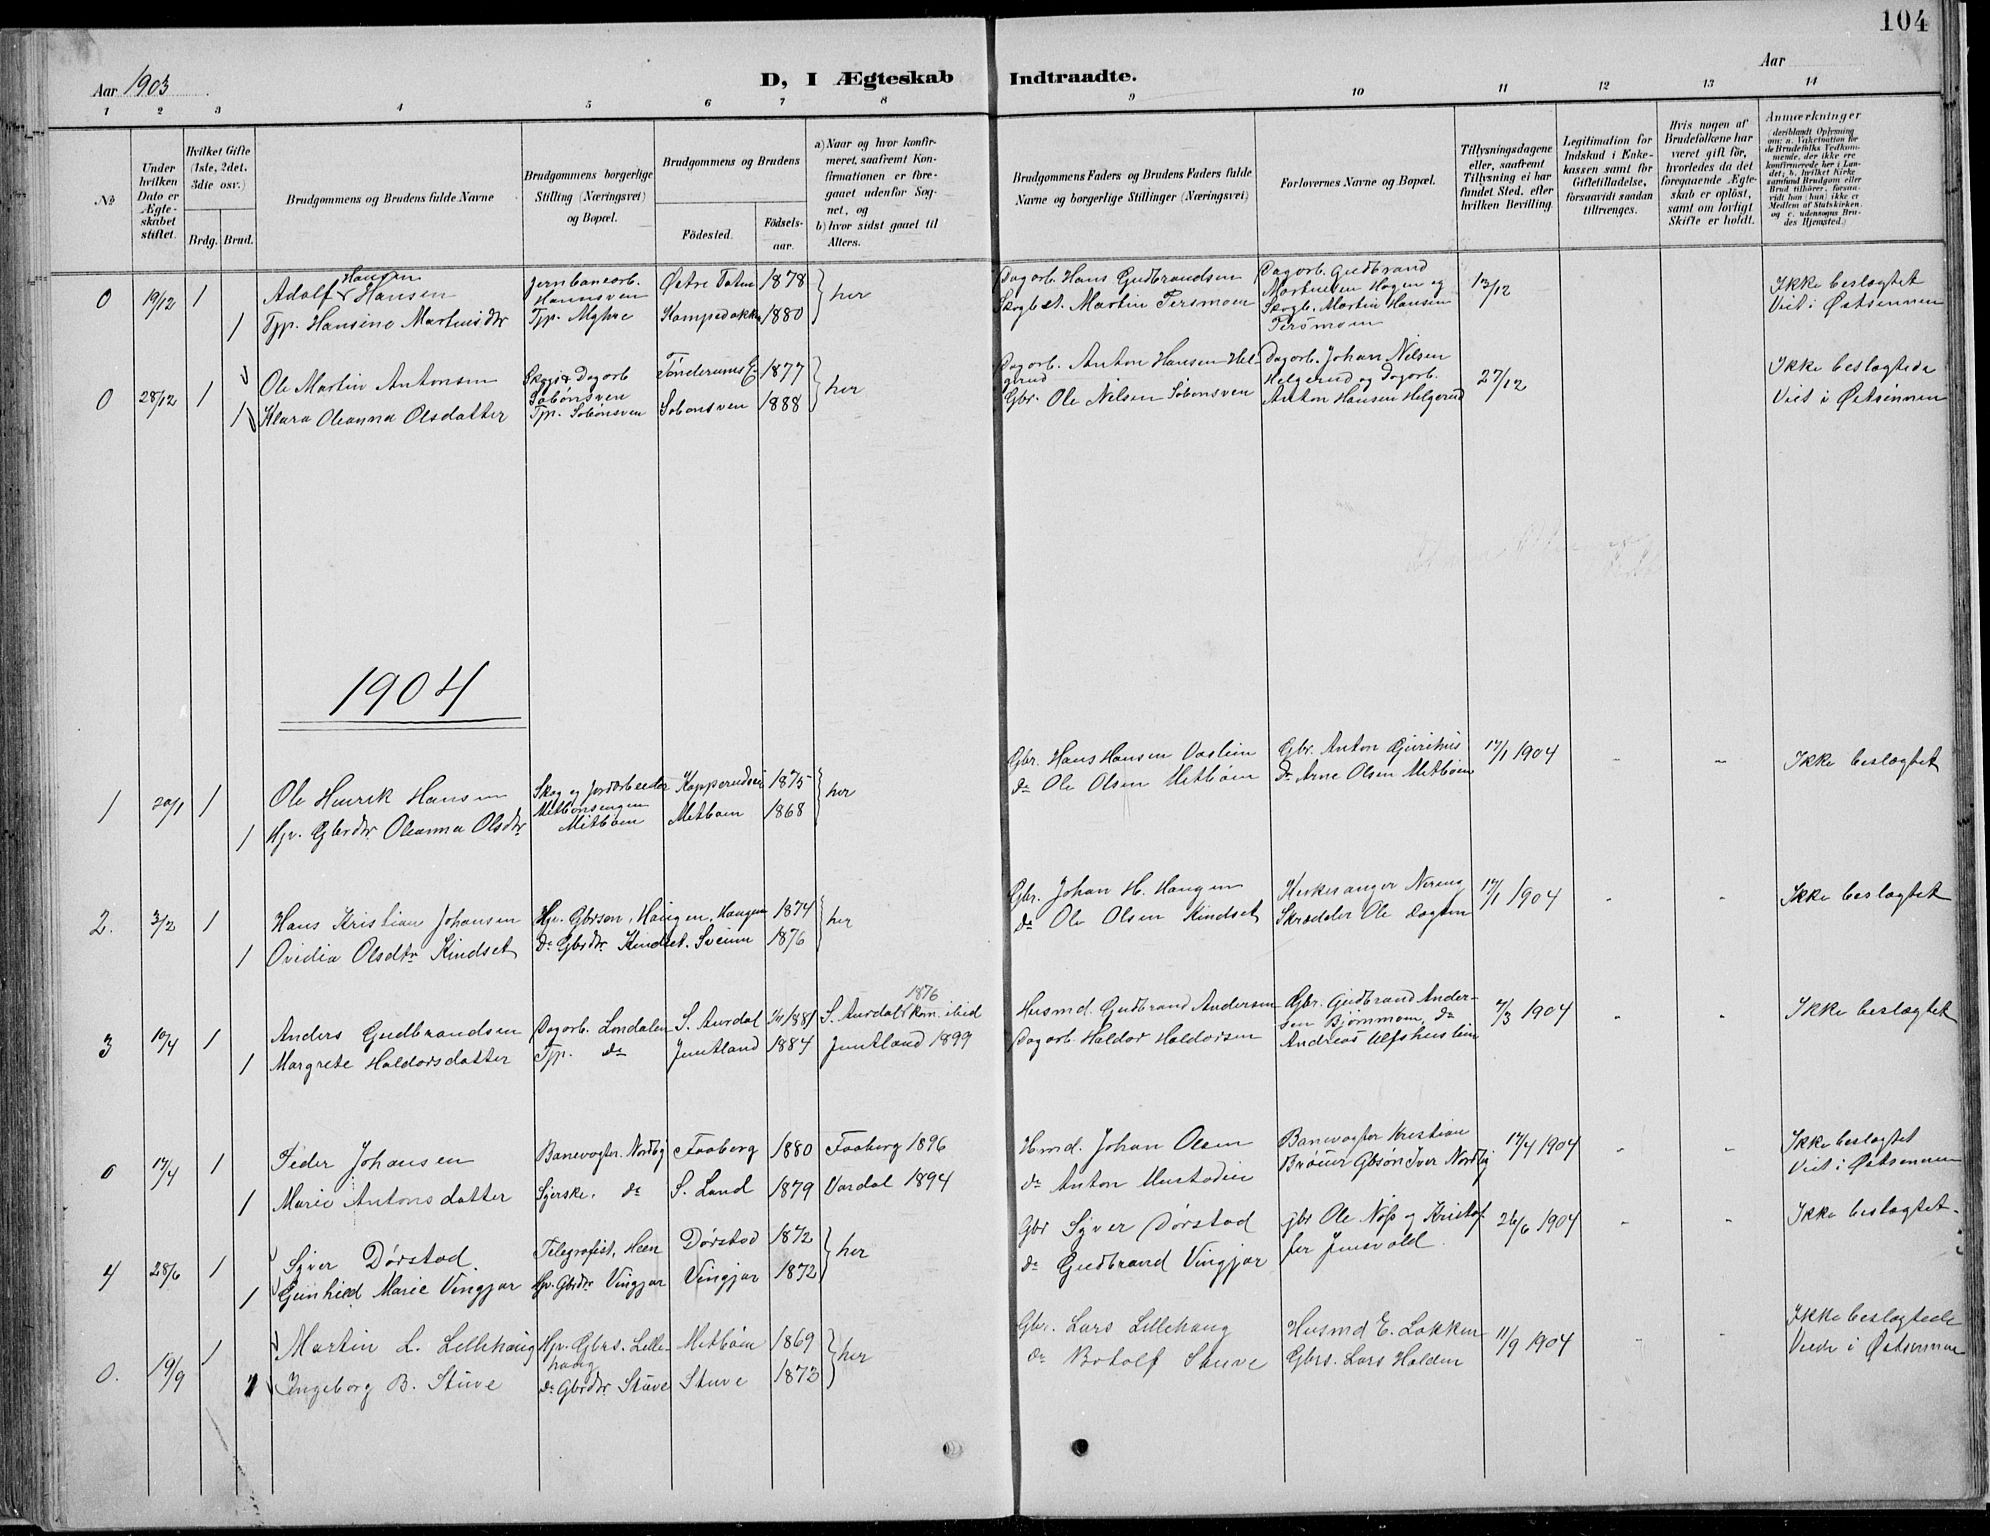 104
Aar 1903
D, I Ægteskab Indtraadte.
Aar
1 2 3 4 5 6 7 8 9 10 11 12 13 14
№
Under hvilken Dato er Ægteskabet stiftet.
Hvilket Gifte (1ste, 2det, 3die osv.)
Brdg. Brud.
Brudgommens og Brudens fulde Navne
Brudgommens borgerlige Stilling (Næringsvei) og Bopæl.
Brudgommens og Brudens
Födested. Födsels-aar.
a) Naar og hvor konfirmeret, saafremt Konfirmationen er foregaaet udenfor Sognet, og
b) hvor sidst gaaet til Alters.
Brudgommens Faders og Brudens Faders fulde Navne og borgerlige Stillinger (Næringsvei)
Forlovernes Navne og Bopæl.
Tillysningsdagene eller, saafremt Tillysning ei har fundet Sted, efter hvilken Bevilling.
Legitimation for Indskud i Enkekassen samt for Giftetilladelse, forsaavidt saadan tiltrænges.
Hvis nogen af Brudefolkene har været gift för, hvorledes da det foregaaende Ægteskab er oplöst, samt om lovligt Skifte er holdt.
Anmærkninger
(deriblandt Oplysning om: a. Vakcination for de Brudefolks Vedkommende, der ikke ere konfirmerede her i Landet; b. hvilket Kirkesamfund Brudgom eller Brud tilhörer, forsaavidt han (hun) ikke er Medlem af Statskirken, og c. udensogns Brudes Hjemsted.)
0 19/12 1 Adolf Hansen Hansen Jernbanearb. Østre Toten 1878 her Dagarb. Hans Gudbrandsen Dagarb. Gudbrand Martinsen Hagen og 13/12 Ikke beslægtet
1 Tjp. Hansine Martinsdtr Tjp. 1880 Skogbst. Martin Skogb. Martin Hansen Viet i Østsinnen
0 28/12 1 Ole Martin Antonsen Skogs & Dagarb Sobonsven 1877 her Dagarb. Anton Hansen Helgerud Dagarb. Johan Nilsen Helgerud og Dagarb. 27/12 Ikke beslægtede
1 Klara Oleanna Olsdatter Tjp. Sobonsven Sobonsven 1888 Gbr. Ole Nilsen Sobonsven Anton Hansen Helgerud Viet i Østsinnen
1904
1 20/1 1 Ole Henrik Hansen Skog og Jordarbeider 1875 her Gbr. Hans Hansen Gbr. Anton 17/1 1904 " " Ikke beslægtet
1 Hjv. Gbrdtr Oleanna Olsdtr Metboen Metboen 1868 do Ole Olsen Metboen do Arne Olsen Metboen
2. 3/2 1 Hans Kristian Johansen Hjv. Gbrsøn, Haugen. Haugen 1874 her Gbr. Johan H. Haugen Kirkesanger Nereng 17/1 1904 " " Ikke beslægtet
1 Ovidia Olsdtr Kindset do Gbrdtr Kindset. 1876 do Ole Olsen Kindset Skrædder Ole
3 10/4 1 Anders Gudbrandsen Dagarb. Londalen S. Aurdal 1881 S. Aurdal 1876 Kom. ibid Husmd. Gudbrand Andersen Gbr. Gudbrand Andersen 7/3 1904 " " Ikke beslægtet
1 Margrete Haldorsdatter Tjp. do Jemtland 1884 Jemtland 1899 Dagarb. Haldor Haldorsen Andreas
0 17/4 1 Peder Johansen Banevogter. Nordby Faaberg 1880 Faaberg 1896 Hmd. Johan Olsen Banevogter Kristian 17/4 1904 " " Ikke beslægtet
1 Marie Antonsdatter Syerske. do S. Land 1879 Vardal 1894 do Anton Gbsøn Iver Nordby Viet i Østsinnen
4 28/6 1 Syver Dørstad. Telegrafist, Heen Dørstad 1872 her Gbr Syver Dørstad gbr Ole Nøss og Kristoffer Jensvold. 26/6 1904 " " Ikke beslægtet.
1 Gunhild Marie Vingjar Hjv. Gbrdtr Vingjar Vingjar 1872 do Gudbrand Vingjar
0. 19/9 1 Martin L. Lillehaug Hjv. Gbrs. Lillehaug Metboen 1869 her Gbr. Lars Lillehaug Husmd E. Løkken 11/9 1904 " " Ikke beslægtede
1 Ingeborg B. Stuve do Gbrdtr. Stuve Stuve 1873 do Botolf Stuve Gbrs. Lars Halden Viede i Østsinnen